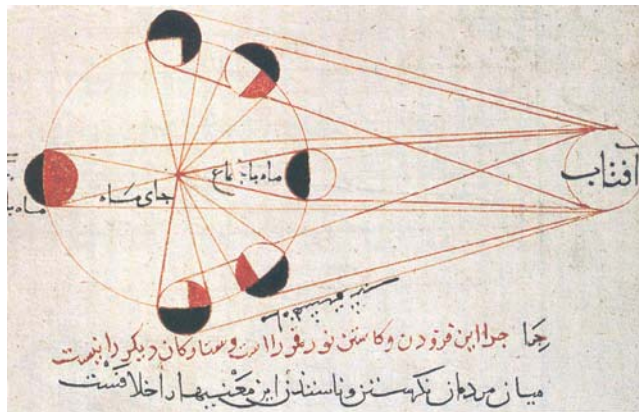 افتاب
ماه باجتماع
جای ماه
ماه با
چرا این فزودن و کاستن نور قمر راست و ستارکان دیکر را نیست
میان مردمان نکرستن و ناسندن این معنیها را خلافست